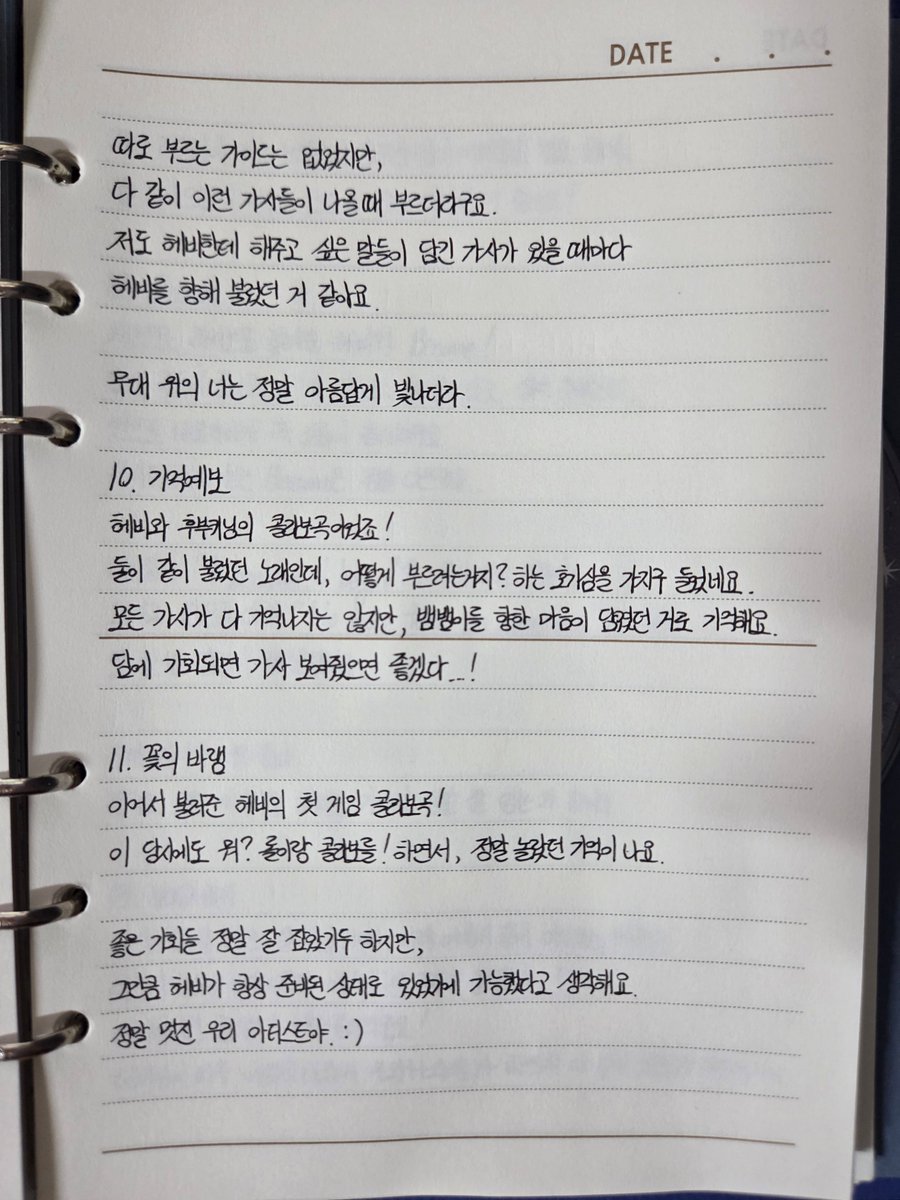 DATE . . .
따로 부르는 가이드는 없었지만,
다 같이 이런 가사들이 나올때 부르더라구요.
저도 헤비한테 해주고 싶은 말들이 담긴 가사가 있을 때마다
헤비를 향해 불렀던 거 같아요.
무대 위의 너는 정말 아름답게 빛나더라.
10. 기억예보
헤비와 후부키님의 콜라보곡이었죠!
둘이 같이 불렀던 노래인데, 어떻게 부르려는가지? 하는 호기심을 가지구 들었네요.
모든 가사가 다 기억나지는 않지만, 뱀뱀이들 향한 마음이 담겼던 거로 기억해요.
담에 기회되면 가사 보여줬으면 좋겠다...!
11. 꽃의 바램
이어서 불러준 헤비의 첫 게임 콜라보곡!
이 당시에도 뭐? 롤이랑 콜라보를! 하면서, 정말 놀랐던 기억이 나요.
좋은 기회들 정말 잘 잡았기두 하지만,
그만큼 헤비가 항상 준비된 상태로 있었기에 가능했다고 생각해요.
정말 멋진 우리 아티스트야. :)